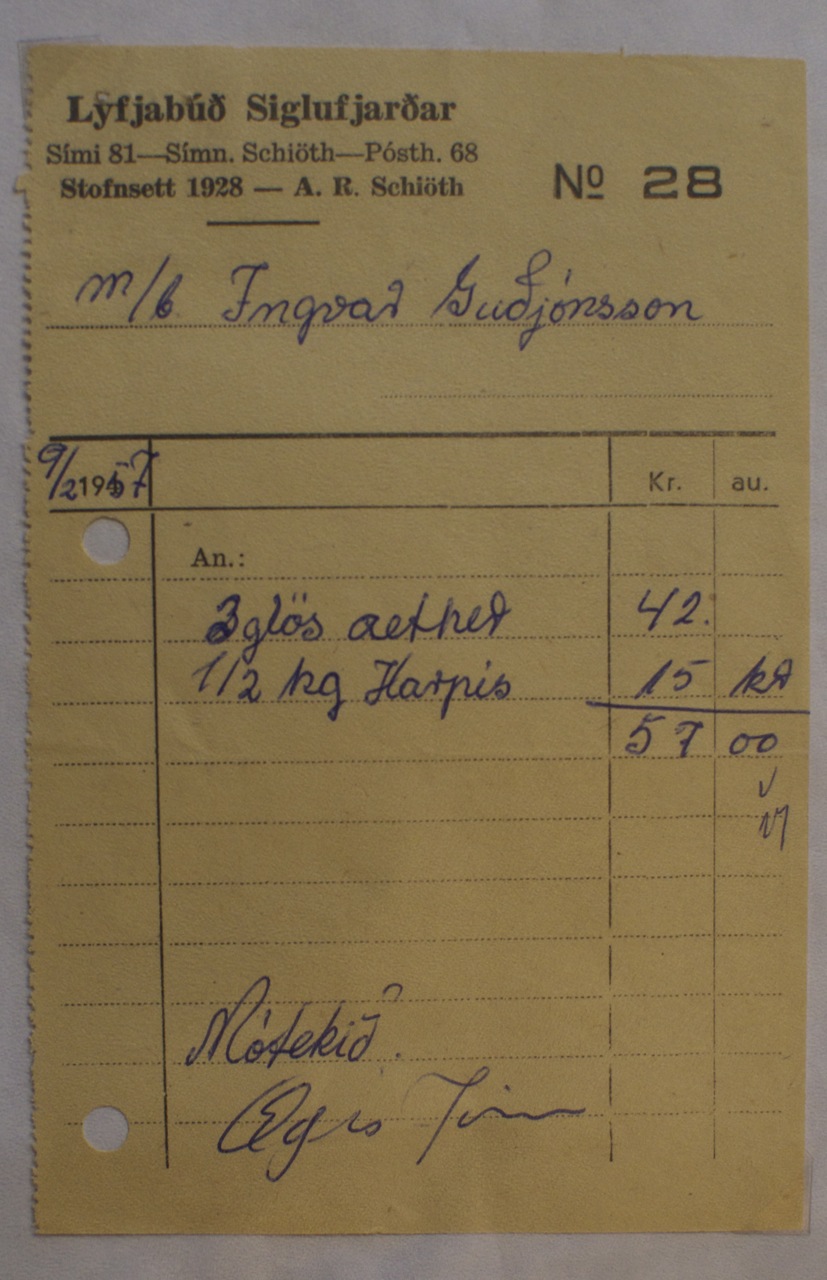 Lyfjabúð Siglufjarðar
Sími 81—Símn. Schiöth—Pósth. 68
Stofnsett 1928 — A. R. Schiöth
Nº 28
m/b Ingvar Guðjónsson
9/2 1957 Kr. au.
An.:
3 glös aether 42.
1/2 kg Harpis 15 kr
57 00
Mótekið.